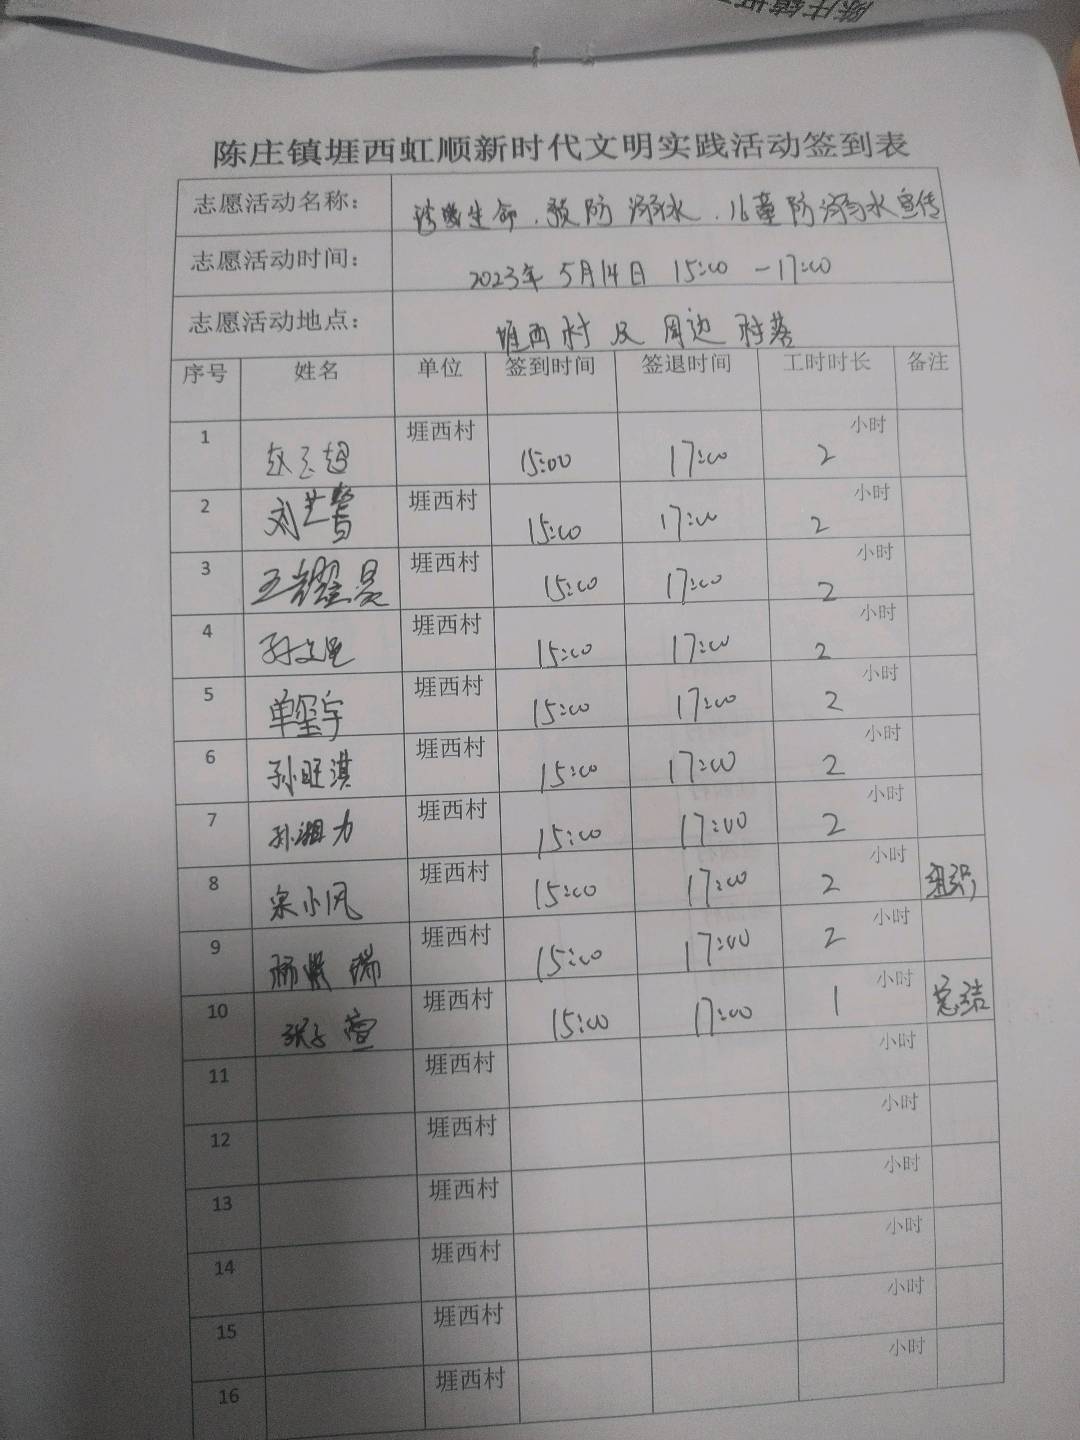 陈庄镇堐西虹顺新时代文明实践活动签到表
志愿活动名称： 珍爱生命、预防溺水、儿童防溺水宣传
志愿活动时间： 2023年5月14日 15:00-17:00
志愿活动地点： 堐西村及周边村落
序号 姓名 单位 签到时间 签退时间 工时时长 备注
1 堐西村 15:00 17:00 2 小时
2 刘艺鸾 堐西村 15:00 17:00 2 小时
3 王耀昊 堐西村 15:00 17:00 2 小时
4 堐西村 15:00 17:00 2 小时
5 单玺宇 堐西村 15:00 17:00 2 小时
6 孙旺淇 堐西村 15:00 17:00 2 小时
7 孙湘力 堐西村 15:00 17:00 2 小时
8 宋小风 堐西村 15:00 17:00 2 小时 组织
9 堐西村 15:00 17:00 2 小时
10 张子萱 堐西村 15:00 17:00 1 小时 总结
11 堐西村 小时
12 堐西村 小时
13 堐西村 小时
14 堐西村 小时
15 堐西村 小时
16 堐西村 小时